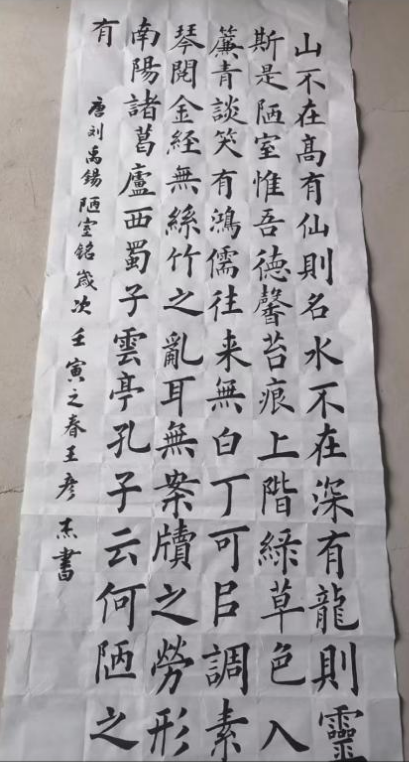 山不在高有仙則名水不在深有龍則靈
斯是陋室惟吾德馨苔痕上階綠草色入
簾青談笑有鴻儒往来無白丁可㠯調素
琴閱金經無絲竹之亂耳無案牘之勞形
南陽諸葛廬西蜀子雲亭孔子云何陋之
有
唐刘禹錫陋室銘歲次壬寅之春王彥杰書